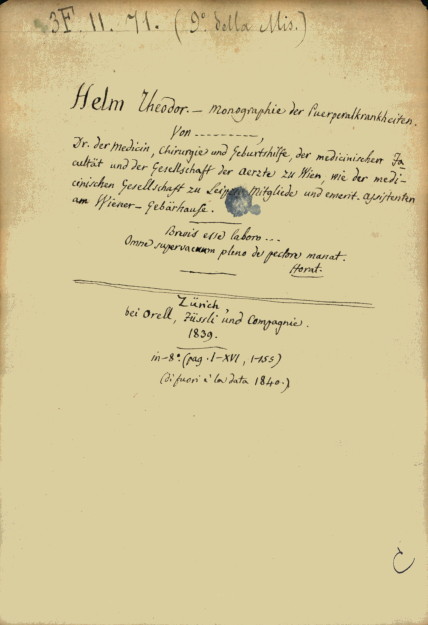 3F. 11. 71. (9° della Mis.)
Helm Theodor. — Monographie der Puerperalkrankheiten.
Von ---------,
Dr. der Medicin, Chirurgie und Geburtshilfe, der medicinischen Fa-
cultät und der Gesellschaft der Aerzte zu Wien, wie der medi-
cinischen Gesellschaft zu Leipzig Mitgliede und emerit. Assistenten
am Wiener-Gebärhause.
Brevis esse laboro...
Omne supervacuum pleno de pectore manat.
Horat.
Zürich,
bei Orell, Füssli und Compagnie.
1839.
in-8°. (pag. I-XVI, 1-155)
(di fuori è la data 1840.)
C